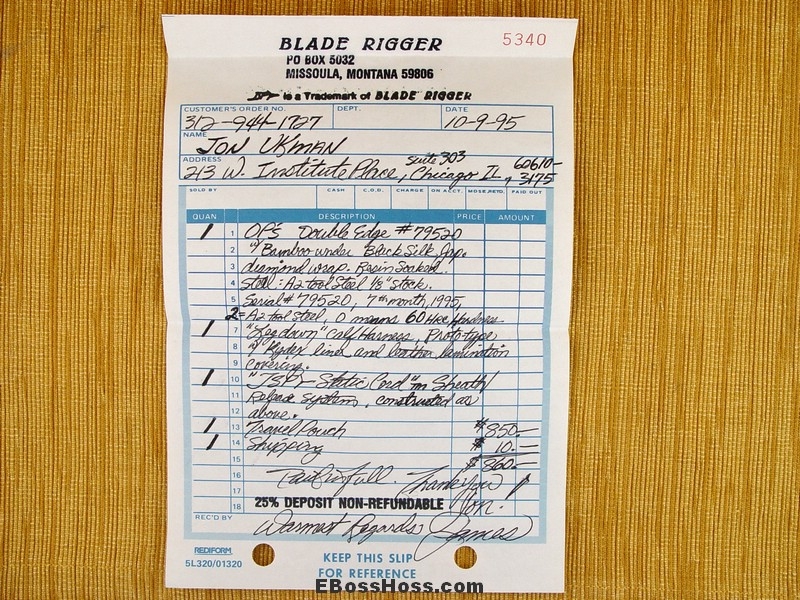 BLADE RIGGER
5340
PO BOX 5032
MISSOULA, MONTANA 59806
is a Trademark of BLADE RIGGER
CUSTOMER'S ORDER NO. DEPT. DATE
312-944-1727 10-9-95
NAME
JON UKMAN
ADDRESS
213 W. Institute Place, Suite 303 Chicago IL, 60610-3175
SOLD BY CASH C.O.D. CHARGE ON ACCT. MDSE. RETD. PAID OUT
QUAN DESCRIPTION PRICE AMOUNT
1 1 Double Edge #79520
2 w/ Bamboo under Black Silk Jap.
3 diamond wrap. Resin Soaked.
4 Steel: A2 tool Steel 1/8" stock.
5 Serial # 79520, 7th month, 1995,
2= A2 tool steel, 0 means 60 HRC Hardness
1 7 "Leg down" Calf Harness, Prototype
8 w/ Kydex liner and leather lamination
9 covering.
1 10 Static Cord" on Sheath
11 Release System, constructed as
12 above.
1 13 Travel Pouch $850.—
1 14 Shipping $10.—
15 $860.—
16 Paid in full. Thank You
17 Jon.
18 25% DEPOSIT NON-REFUNDABLE
REC'D BY
Warmest Regards, James
REDIFORM
5L320/01320
KEEP THIS SLIP
FOR REFERENCE
EBossHoss.com